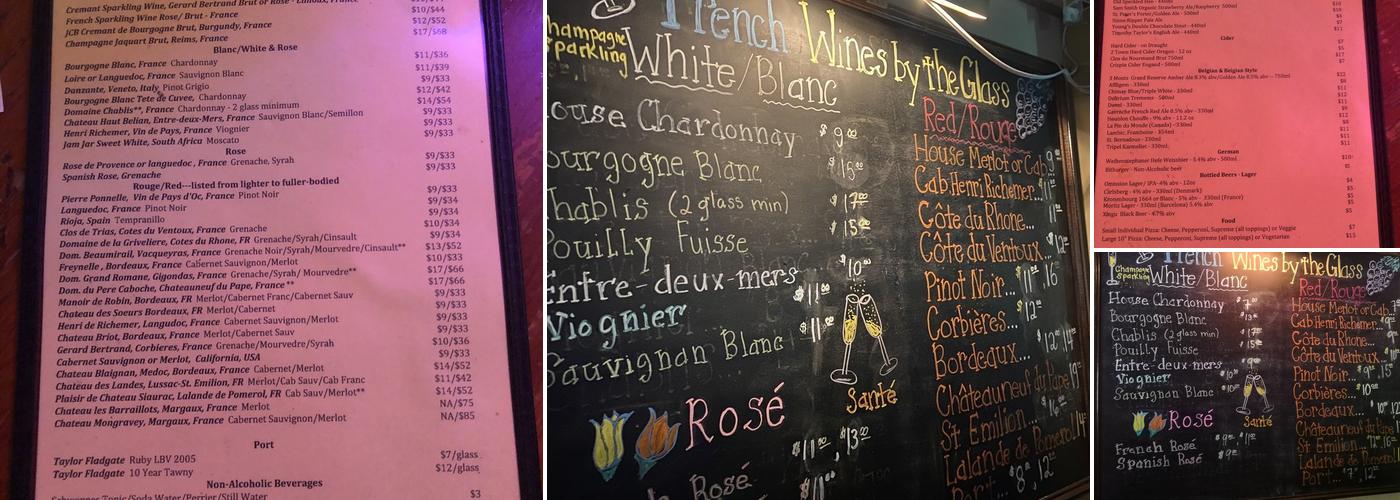 Cremant Sparkling Wine, Gerard Bertrand Brut or
French Sparkling Wine Rose/ Brut - France $10/$44
JCB Cremant de Bourgogne Brut, Burgundy, France $12/$52
Champagne Jaquart Brut, Reims, France $17/$68
Blanc/White & Rose
Bourgogne Blanc, France Chardonnay $11/$36
Loire or Languedoc, France Sauvignon Blanc $11/$39
Danzante, Veneto, Italy Pinot Grigio $9/$33
Bourgogne Blanc Tete de Cuvee, Chardonnay $12/$42
Domaine Chablis**, France Chardonnay - 2 glass minimum $14/$54
Chateau Haut Belian, Entre-deux-Mers, France Sauvignon Blanc/Semillon $9/$33
Henri Richemer, Vin de Pays, France Viognier $9/$33
Jam Jar Sweet White, South Africa Moscato $9/$33
Rose
Rose de Provence or languedoc , France Grenache, Syrah $9/$33
Spanish Rose, Grenache $9/$33
Rouge/Red---listed from lighter to fuller-bodied
Pierre Ponnelle, Vin de Pays d'Oc, France Pinot Noir $9/$33
Languedoc, France Pinot Noir $9/$34
Rioja, Spain Tempranillo $9/$34
Clos de Trias, Cotes du Ventoux, France Grenache $10/$34
Domaine de la Griveliere, Cotes du Rhone, FR Grenache/Syrah/Cinsault $9/$34
Dom. Beaumirail, Vacqueyras, France Grenache Noir/Syrah/Mourvedre/Cinsault** $13/$52
Freynelle , Bordeaux, France Cabernet Sauvignon/Merlot $10/$33
Dom. Grand Romane, Gigondas, France Grenache/Syrah/ Mourvedre** $17/$66
Dom. du Pere Caboche, Chateauneuf du Pape, France ** $17/$66
Manoir de Robin, Bordeaux, FR Merlot/Cabernet Franc/Cabernet Sauv $9/$33
Chateau des Soeurs Bordeaux, FR Merlot/Cabernet $9/$33
Henri de Richemer, Langudoc, France Cabernet Sauvignon/Merlot $9/$33
Chateau Briot, Bordeaux, FR Merlot/Cabernet Sauv $9/$33
Gerard Bertrand, Corbieres, France Grenache/Mourvedre/Syrah $10/$36
Cabernet Sauvignon or Merlot, California, USA $9/$33
Chateau Blaignan, Medoc, Bordeaux, France Cabernet/Merlot $14/$52
Chateau des Landes, Lussac-St. Emilion, FR Merlot/Cab Sauv/Cab Franc $11/$42
Plaisir de Chateau Siaurac, Lalande de Pomerol, FR Cab Sauv/Merlot** $14/$52
Chateau les Barraillots, Margaux, France Merlot NA/$75
Chateau Mongravey, Margaux, France Cabernet Sauvignon/Merlot NA/$85
Port
Taylor Fladgate Ruby LBV 2005 $7/glass
Taylor Fladgate 10 Year Tawny $12/glass
Non-Alcoholic Beverages
Tonic/Soda Water/Perrier/Still Water $3
French Wines by the Glass
Champagne
Sparkling
White/Blanc
House Chardonnay $9.00
Bourgogne Blanc $15.00
Chablis (2 glass min) $17.00
Pouilly Fuisse $15
Entre-deux-mers $10.00
Viognier $11.00
Sauvignan Blanc $11.00
Rosé
$11.00, $13.00
Rosé
Santé
Red/Rouge
House Merlot or Cab
Cab Henri Richemer...
Côte du Rhone...
Côte du Ventoux..
Pinot Noir...
Corbières...
Bordeaux...
Châteauneuf du Pape
St Emilion...
Lalande de Pomerol
Port... 8, 12
Sam Smith Organic Strawberry Ale/Raspberry 500ml
St. Peter's Porter/Golden Ale - 500ml
Young's Double Chocolate Stout - 440ml
Timothy Taylor's English Ale - 440ml
Cider
Hard Cider - on Draught
2 Town Hard Cider Oregon - 12 oz
Clos du Nourmand Brut 750ml
Crispin Cider England - 500ml
Belgian & Belgian Style
3 Monts Grand Reserve Amber Ale 8.3% abv/Golden Ale 8.5% abv - 750ml
Affligem - 330ml
Chimay Blue/Triple White - 330ml
Delirium Tremens - 500ml
Duvel - 330ml
Gavroche French Red Ale 8.5% abv - 330ml
Houblon Chouffe - 9% abv - 11.2 oz
La Fin du Monde (Canada) - 330ml
Lambic, Framboise - 354ml
St. Bernadous - 330ml
Tripel Karmeliet - 330ml
German
Weihenstephaner Hefe Weissbier - 5.4% abv - 500ml
Bitburger - Non-Alcoholic beer
Bottled Beers - Lager
Omission Lager/ IPA-4% abv - 12oz $4
Carlsberg - 4% abv - 330ml (Denmark) $5
Kronenbourg 1664 or Blanc - 5% abv - 330ml (France) $5
Moritz Lager - 330ml (Barcelona) 5.4% abv $5
Xingu Black Beer - 4.7% abv $5
Food
Small Individual Pizza: Cheese, Pepperoni, Supreme (all toppings) or Veggie $7
Large 10" Pizza: Cheese, Pepperoni, Supreme (all toppings) or Vegetarian $15
French Wines by the Glass
Champagne
Sparkling
White/Blanc
House Chardonnay
Bourgogne Blanc
Chablis (2 glass min)
Pouilly Fuisse
Entre-deux-mers
Viognier
Sauvignan Blanc
Rosé
French Rosé
Spanish Rosé
Santé
Red/Rouge
House Merlot or Cab
Cab Henri Richemer..
Côte du Rhone..
Côte du Ventoux..
Pinot Noir...
Corbières...
Bordeaux...
Châteauneuf du Pape
St Emilion...
Lalande de Pomerol
Port...